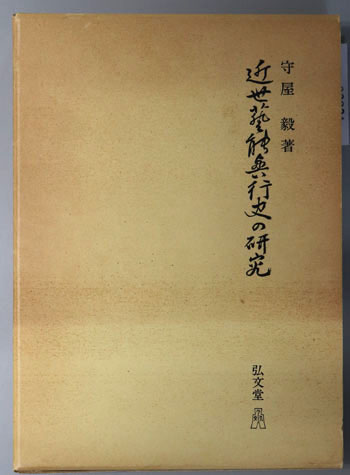 守屋毅著
近世藝能興行史の研究
弘文堂